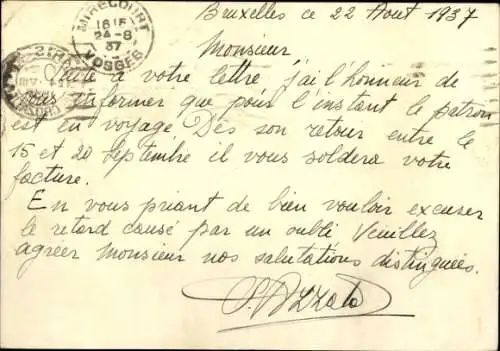 Bruxelles ce 22 Aout 1937
MIRECOURT
16 15
24-8
37
VOSGES
Monsieur
Suite à votre lettre j'ai l'honneur de
vous informer que pour l'instant le patron
est en voyage. Dès son retour entre le
15 et 20 Septembre il vous soldera votre
facture.
En vous priant de bien vouloir excuser
le retard causé par un oubli Veuillez
agréer Monsieur nos salutations distinguées.